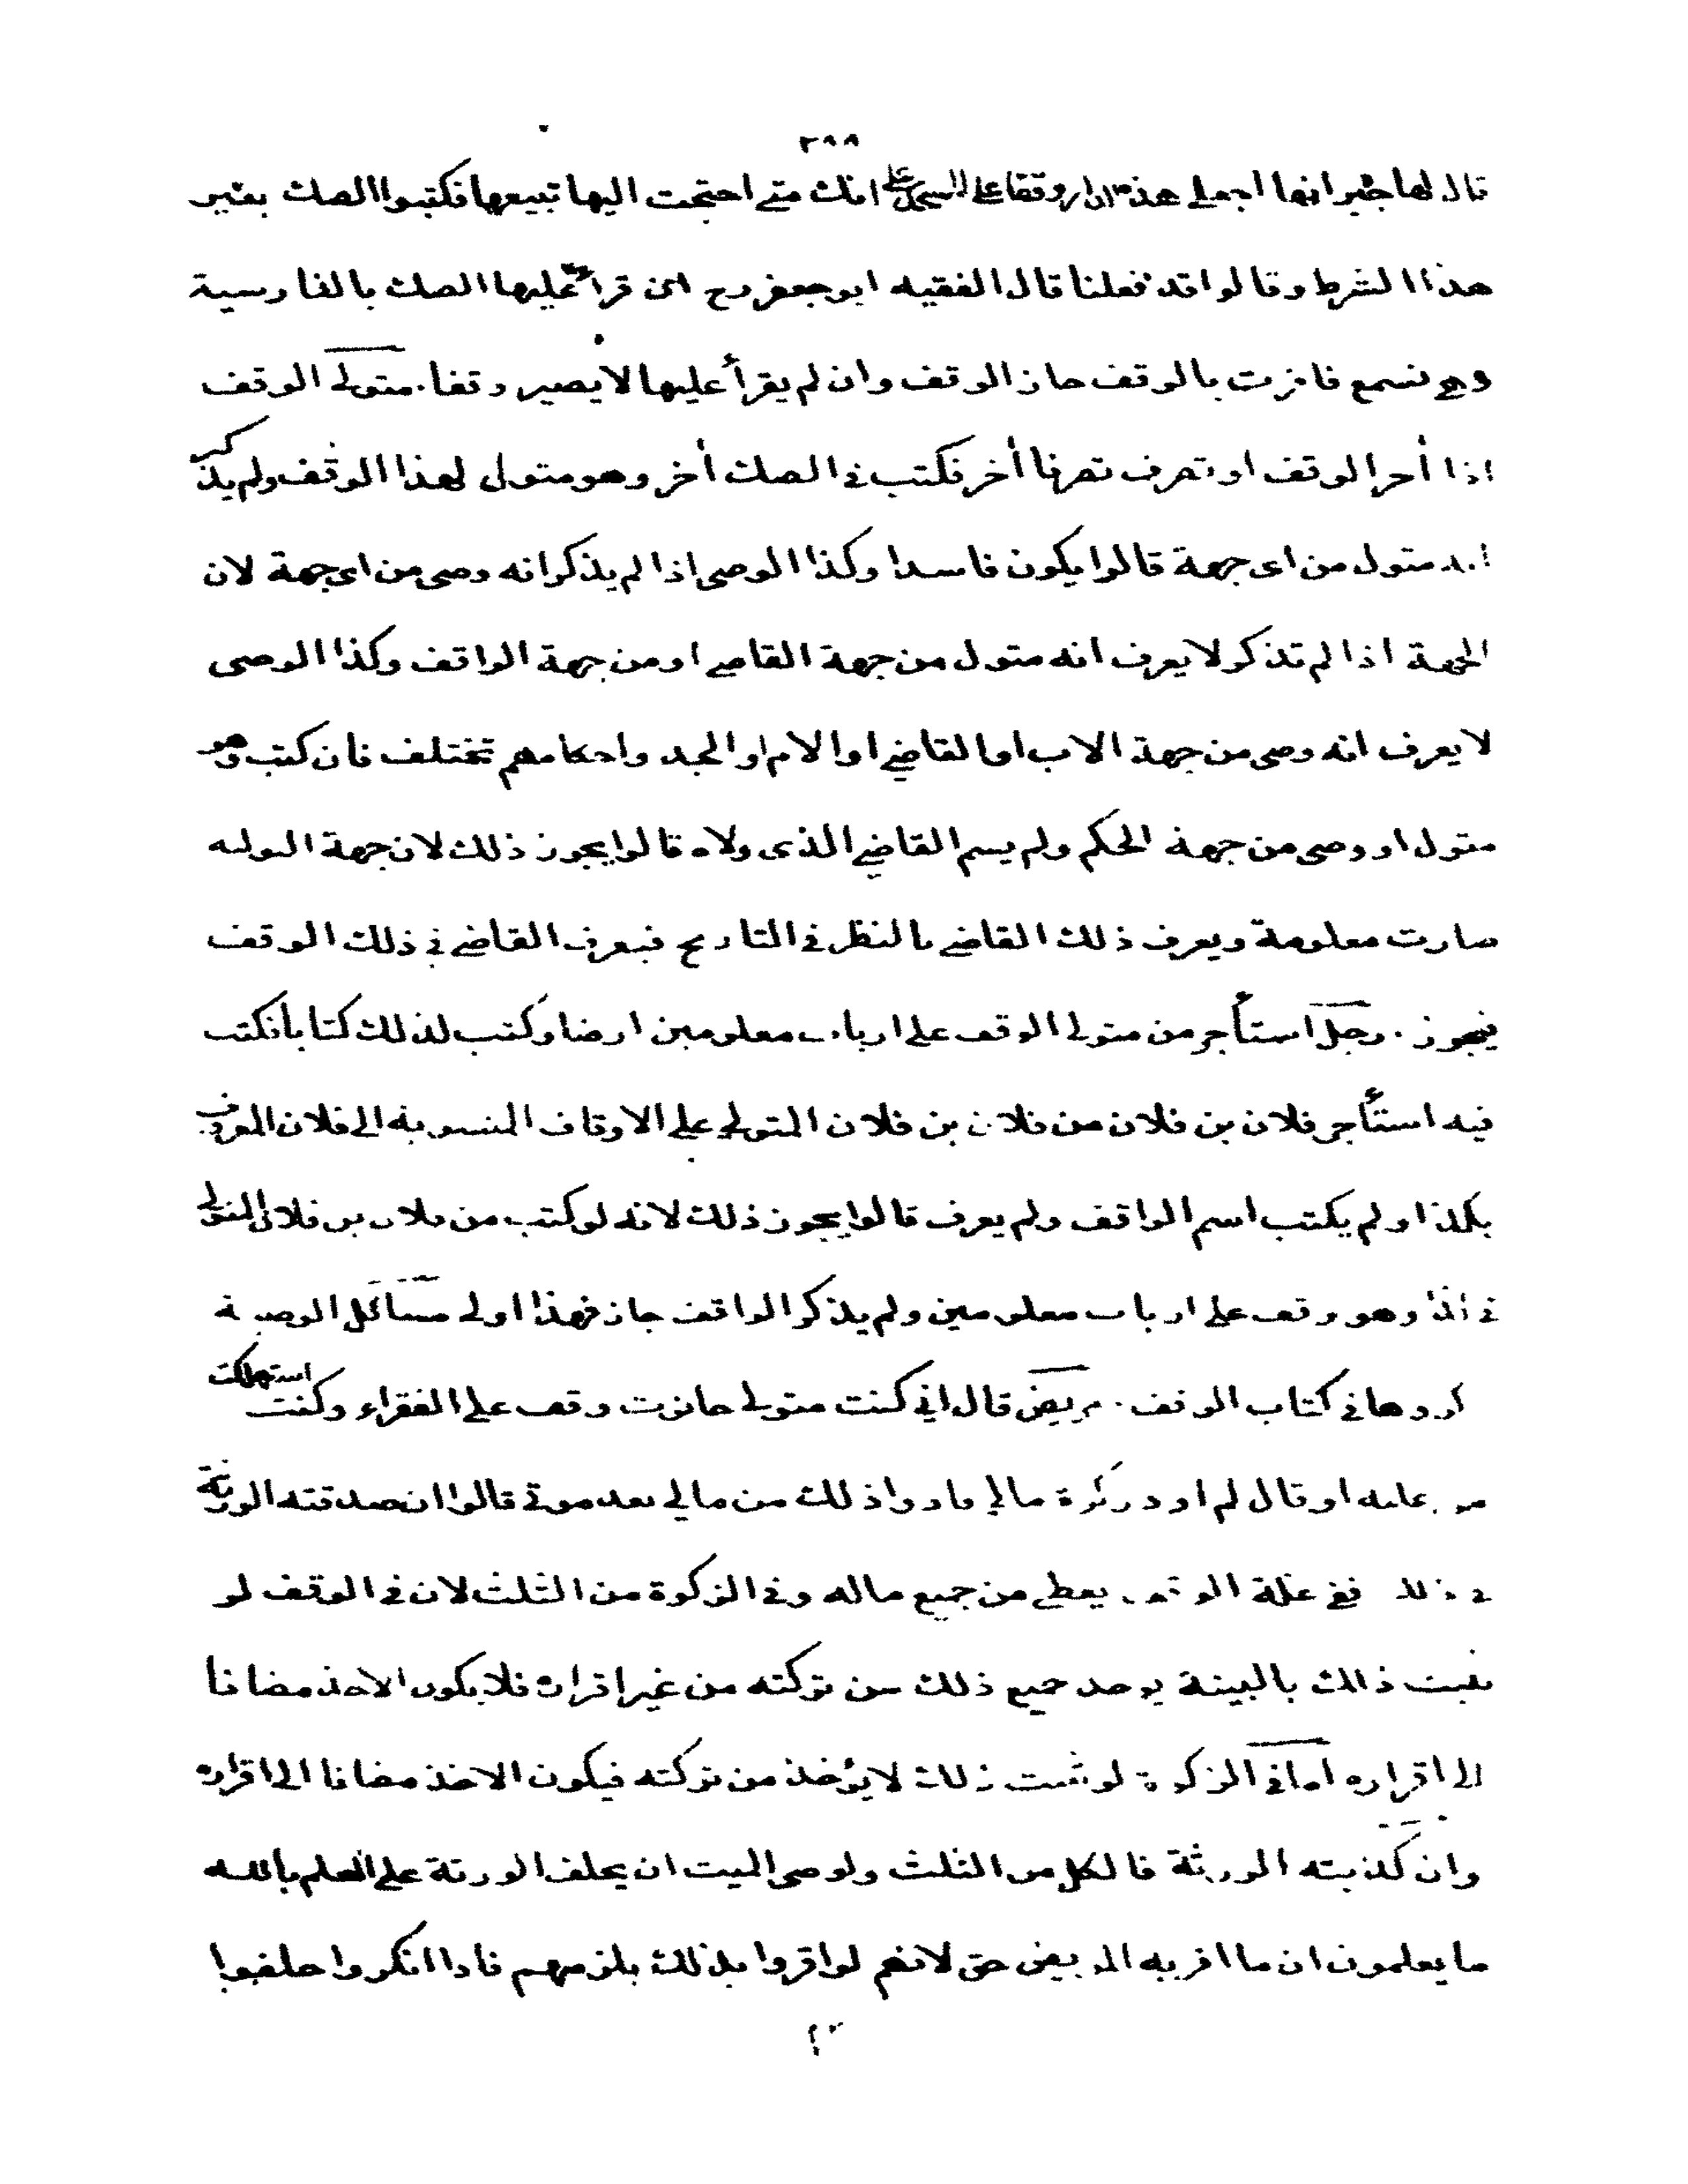 ٢٨٨
قال لها جيرانها اجعلي هذه الدار وقفا على المسجد على انك متى احتجت اليها تبيعها فكتبوا الصك بغير
هذا الشرط وقالوا قد فعلنا قال الفقيه ابو جعفر رح ان قرأ عليها الصك بالفارسية
وهي تسمع فاقرت بالوقف جاز الوقف وان لم يقرأ عليها لا يصير وقفا. متولى الوقف
اذا أجر الوقف او تصرف تصرفا أخر فكتب في الصك أخر وهو متولى لهذا الوقف ولم يذكر
انه متول من اى جهة قالوا يكون فاسدا وكذا الوصى اذا لم يذكر انه وصى من اى جهة لان
الجهة اذا لم تذكر لا يعرف انه متول من جهة القاضى او من جهة الواقف وكذا الوصى
لا يعرف انه وصى من جهة الاب او القاضي او الام او الجد واحكامهم تختلف فان كتب وهو
متول او وصى من جهة الحكم ولم يسم القاضي الذى ولاه قالوا يجوز ذلك لان جهة التولية
صارت معلومة ويعرف ذلك القاضي بالنظر في التاريخ فيعرف القاضي في ذلك الوقف
فيجوز. رجل استأجر من متولى الوقف على ارباب معلومين ارضا وكتب لذلك كتابا فكتب
فيه استأجر فلان بن فلان من فلان بن فلان المتولى على الاوقاف المنسوبة الى فلان المعروف
بكذا ولم يكتب اسم الواقف ولم يعرف قالوا يجوز ذلك لانه لو كتب من فلان بن فلان المتولى
في كذا وهو وقف على ارباب معلومين ولم يذكر الواقف جاز فهذا اولى مسائل الوصية
اوردها في كتاب الوقف. مريض قال اني كنت متولى حانوت وقف على الفقراء وكنت استهلكت
من غلته او قال لم اود زكوة مالى فادوا ذلك من مالى بعد موتى قالوا ان صدقته الورثة
في ذلك ففي غلة الوقف يعطى من جميع ماله وفي الزكوة من الثلث لان في الوقف لو
ثبت ذلك بالبينة يوخذ جميع ذلك من تركته من غير اقراره فلا يكون الاخذ مضافا
الى اقراره اما في الزكوة لو ثبت ذلك لا يؤخذ من تركته فيكون الاخذ مضافا الى اقراره
وان كذبته الورثة فالكل من الثلث ولوصى الميت ان يحلف الورثة على العلم بالله
ما يعلمون ان ما اقر به المريض حق لانهم لو اقروا بذلك يلزمهم فاذا انكروا حلفوا